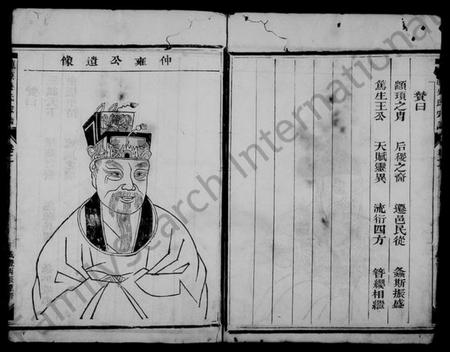 贊曰
顓頊之冑 后稷之裔 遷邑民從 螽斯振盛
篤生王公 天賦靈異 流衍四方 簪纓相繼
仲雍公遺像
FamilySearch International